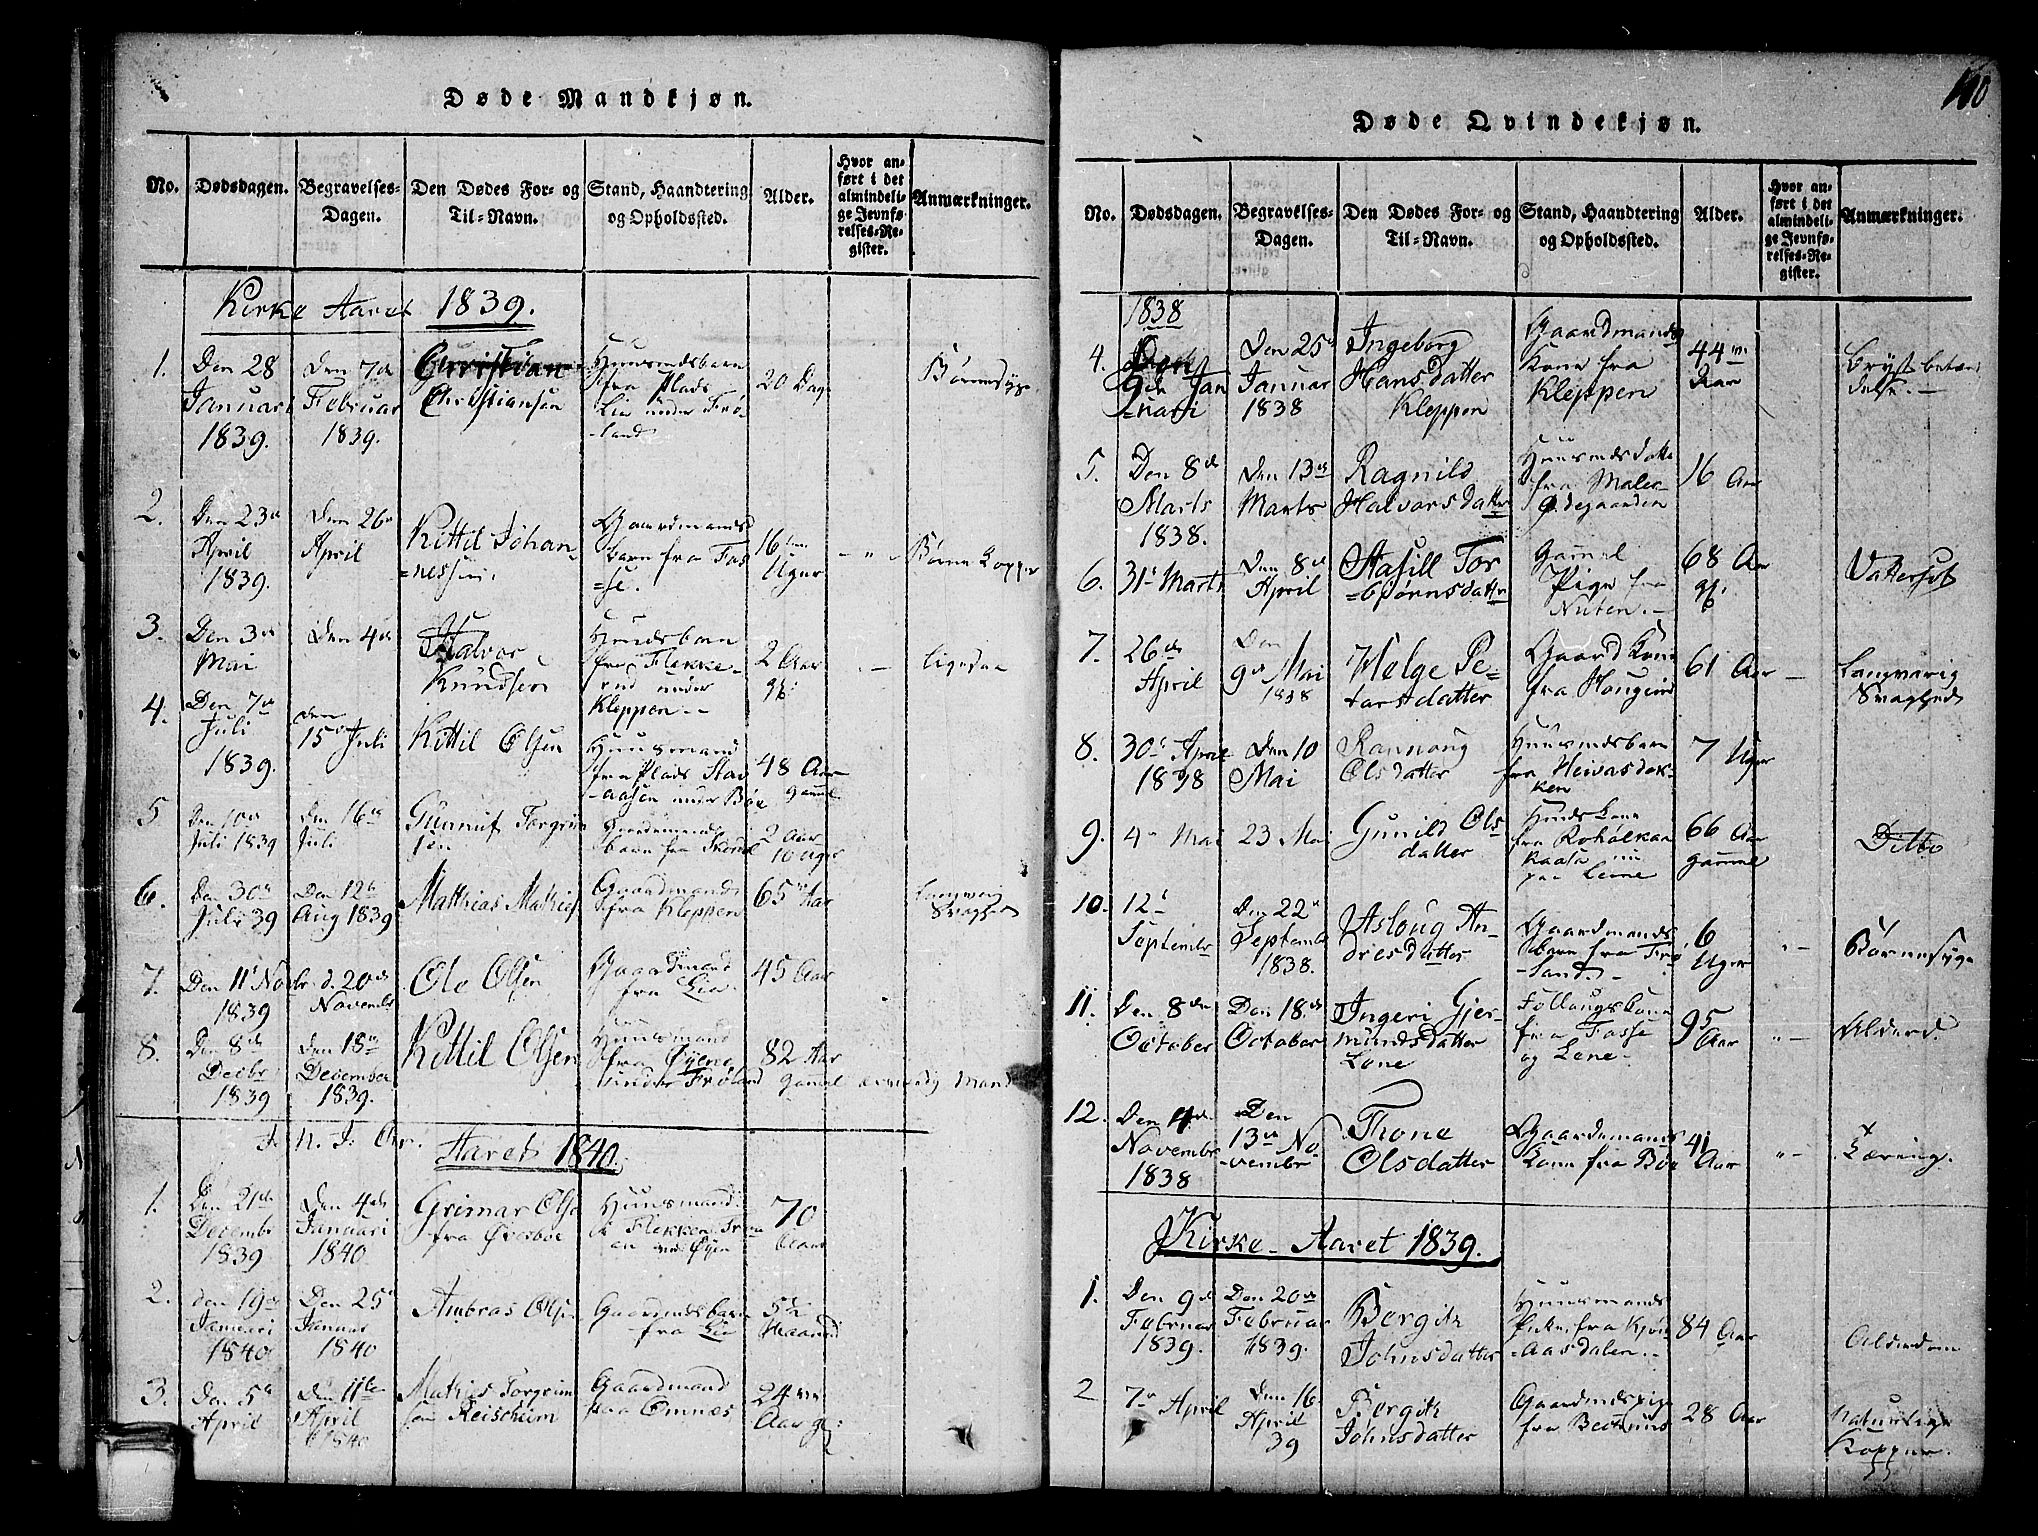 Døde Mandkjøn.
No. Dødsdagen. Begravelses-Dagen. Den Dødes For- og Til-Navn. Stand, Haandtering og Opholdssted. Alder. Hvor anført i det almindelige Jevnførelses-Register. Anmærkninger.
Kirke Aaret 1839.
1. Den 28 Januari 1839. Den 7de Februar 1839. Christian Christiansen fra Plads Lia under Frøland 20 Dage
2. Den 23de April 1839. Den 26 April Kittil Johannessen. Gaardmands barn fra Fosse. 16 Uger Børne Kopper
3. Den 3de Mai Den 4de Halvor Knudsen fra Flekkerud under Kleppen 2 Aar gl: Ligedan
4. Den 7de Juli 1839. Den 15de Juli Kittil Olsen Huusmand fra Plads under Bøe 48 Aar gammel
5 Den 10de Juli 1839 Den 16de Juli Gunnuf Torgrimsen barn fra 2 Aar 10 Uger
6. Den 30de Juli 39 Den 12te Aug 1839 Mathias Mathies Gaardmand fra Kleppen 65 Aar Langvarig Svaghed
7. Den 11te Novbr 1839 d. 20de Novembr Ole Olsen Gaardmand fra Lia 45 Aar
8. Den 8de Decbr 1839 Den 18de December 1839. Kittil Olsen Huusmand fra Øyene under Frøland 82 Aar gammel Mand
Aaret 1840.
1. Den 21de Decembr 1839 Den 4de Januari 1840 Greimar Olse fra Øverbøe Huusmand 70 Aar
2. Den 19de Januari 1840 Den 25de Januar 1840 Ambros Olse Gaardmandsbarn fra Lia 5½
3. Den 5te April Den 11te April 1840 Mathis Torgrimsen Reischiem Gaardmand fra Omnæs 24 Aar gl:
110
Døde Qvindekjøn.
No. Dødsdagen. Begravelses-Dagen. Den Dødes For- og Til-Navn. Stand, Haandtering og Opholdssted. Alder. Hvor anført i det almindelige Jevnførelses-Register. Anmærkninger.
1838
4. 9de Januari Den 25de Januar 1838 Ingeborg Hansdatter Kleppen Gaardmands Kone fra Kleppen 44 Aar Bryst betændelse.
5. Den 8de Marts 1838. Den 13de Marts Ragnild Halvorsdatter fra Ødegaarden 16 Aar
6. 31te Marts Den 8de April Torbjørnsdatter Gammel Pige fra Nuten. 68 Aar gl. Vattersot
7. 26de April Den 9de Mai 1838 Helge Petersdatter Gaard Kone fra 61 Aar Langvarig Svaghed
8. 30te April 1838 Den 10 Mai Rannoug Olsdatter fra 7 Uger
9. 4de Mai 23 Mai Gunild Olsdatter 66 Aar gammel Ditto
10. 12te September Den 22de Septembr 1838. Asloug Andresdatter Gaardmands barn fra Frøland. 6 Uger Børnesyge
11. Den 8de October Den 18de October Ingeri Gjermundsdatter Lone fra Fosse og Lene 95 Aar Alderd.
12. Den 4de Novembr 1838 Den 13de Novembr Thone Olsdatter Gaardemands Kone fra Bøe 41 Aar Tæring.
Kirke-Aaret 1839.
1. Den 9de Februar 1839. Den 20de Februar 1839. Bergit Johnsdatter Huusmands fra 84 Aar Alderdom
2 7de April Den 16 April 39 Bergit Johnsdatter Gaardmandspige fra 28 Aar Naturlige Kopper.